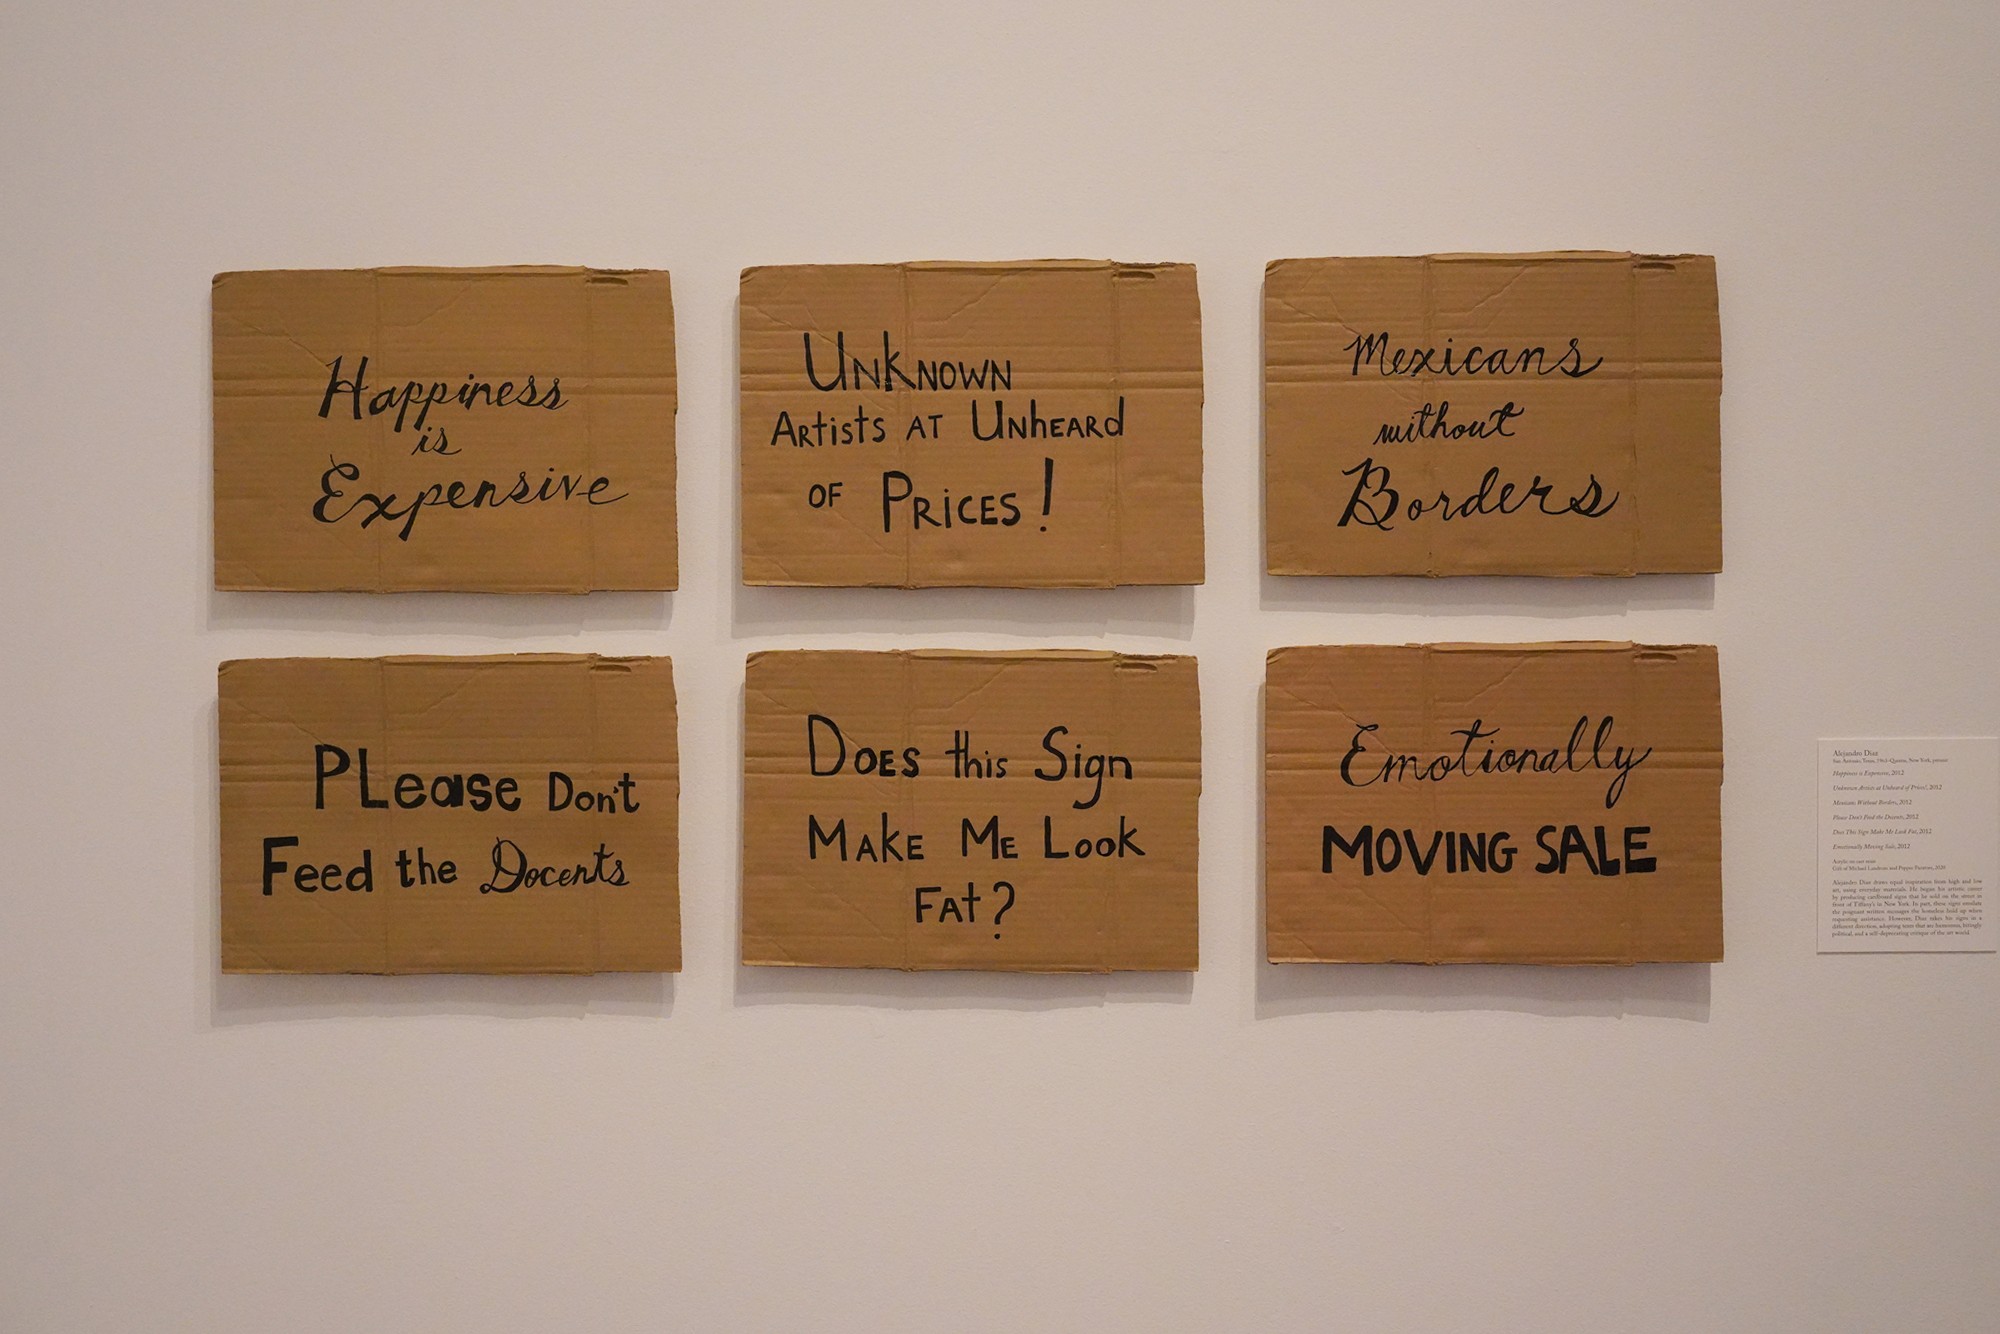 Happiness
is
Expensive
UNKNOWN
ARtists AT UNhEARd
OF PRICES!
Mexicans
without
Borders
PLease Don't
Feed the Docents
DOES this Sign
MAKE ME Look
FAt?
Emotionally
MOVING SALE
Alejandro Diaz
San Antonio, Texas, 1963–Queens, New York, present
Happiness is Expensive, 2012
Unknown Artists at Unheard of Prices!, 2012
Mexicans Without Borders, 2012
Please Don't Feed the Docents, 2012
Does This Sign Make Me Look Fat, 2012
Emotionally Moving Sale, 2012
Acrylic on cast resin
Gift of Michael Landrum and Pepper Paratore, 2020
Alejandro Diaz draws equal inspiration from high and low
art, using everyday materials. He began his artistic career
by producing cardboard signs that he sold on the street in
front of Tiffany's in New York. In part, these signs emulate
the poignant written messages the homeless hold up when
requesting assistance. However, Diaz takes his signs in a
different direction, adopting tones that are humorous, bitingly
political, and a self-deprecating critique of the art world.